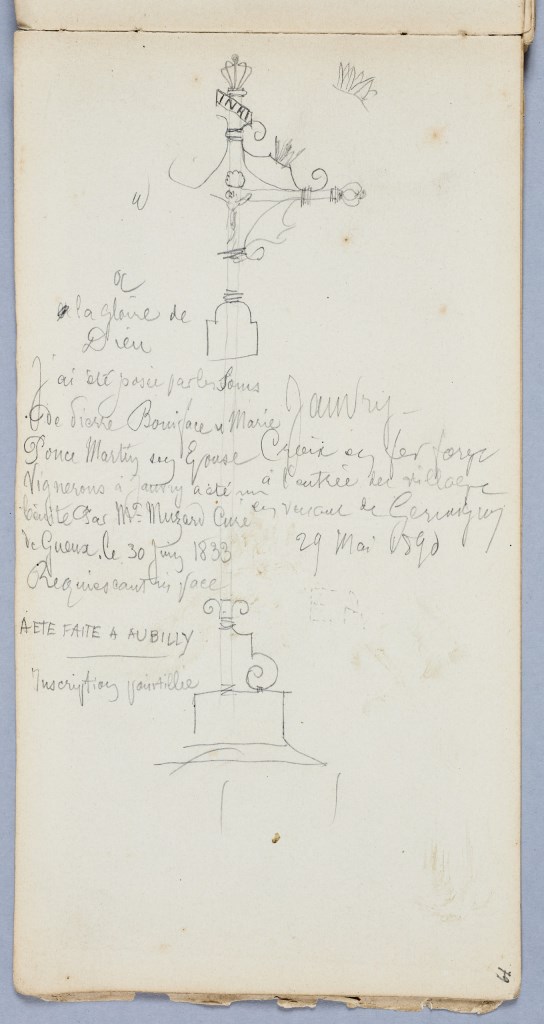 INRI
a la gloire de
Dieu
J'ai été posée par les Soins
de Pierre Boniface & Marie
Ponce Martin son Epouse
Vignerons à Janvry a été
bénite Par Mr. Muzard Curé
de Gueux. le 30 Juin 1833
Requiescant in pace
A ETE FAITE A AUBILLY
Inscription pointillée
Janvry -
Croix en fer forgé
à l'entrée du village
en venant de Germigny
29 Mai 1890
79